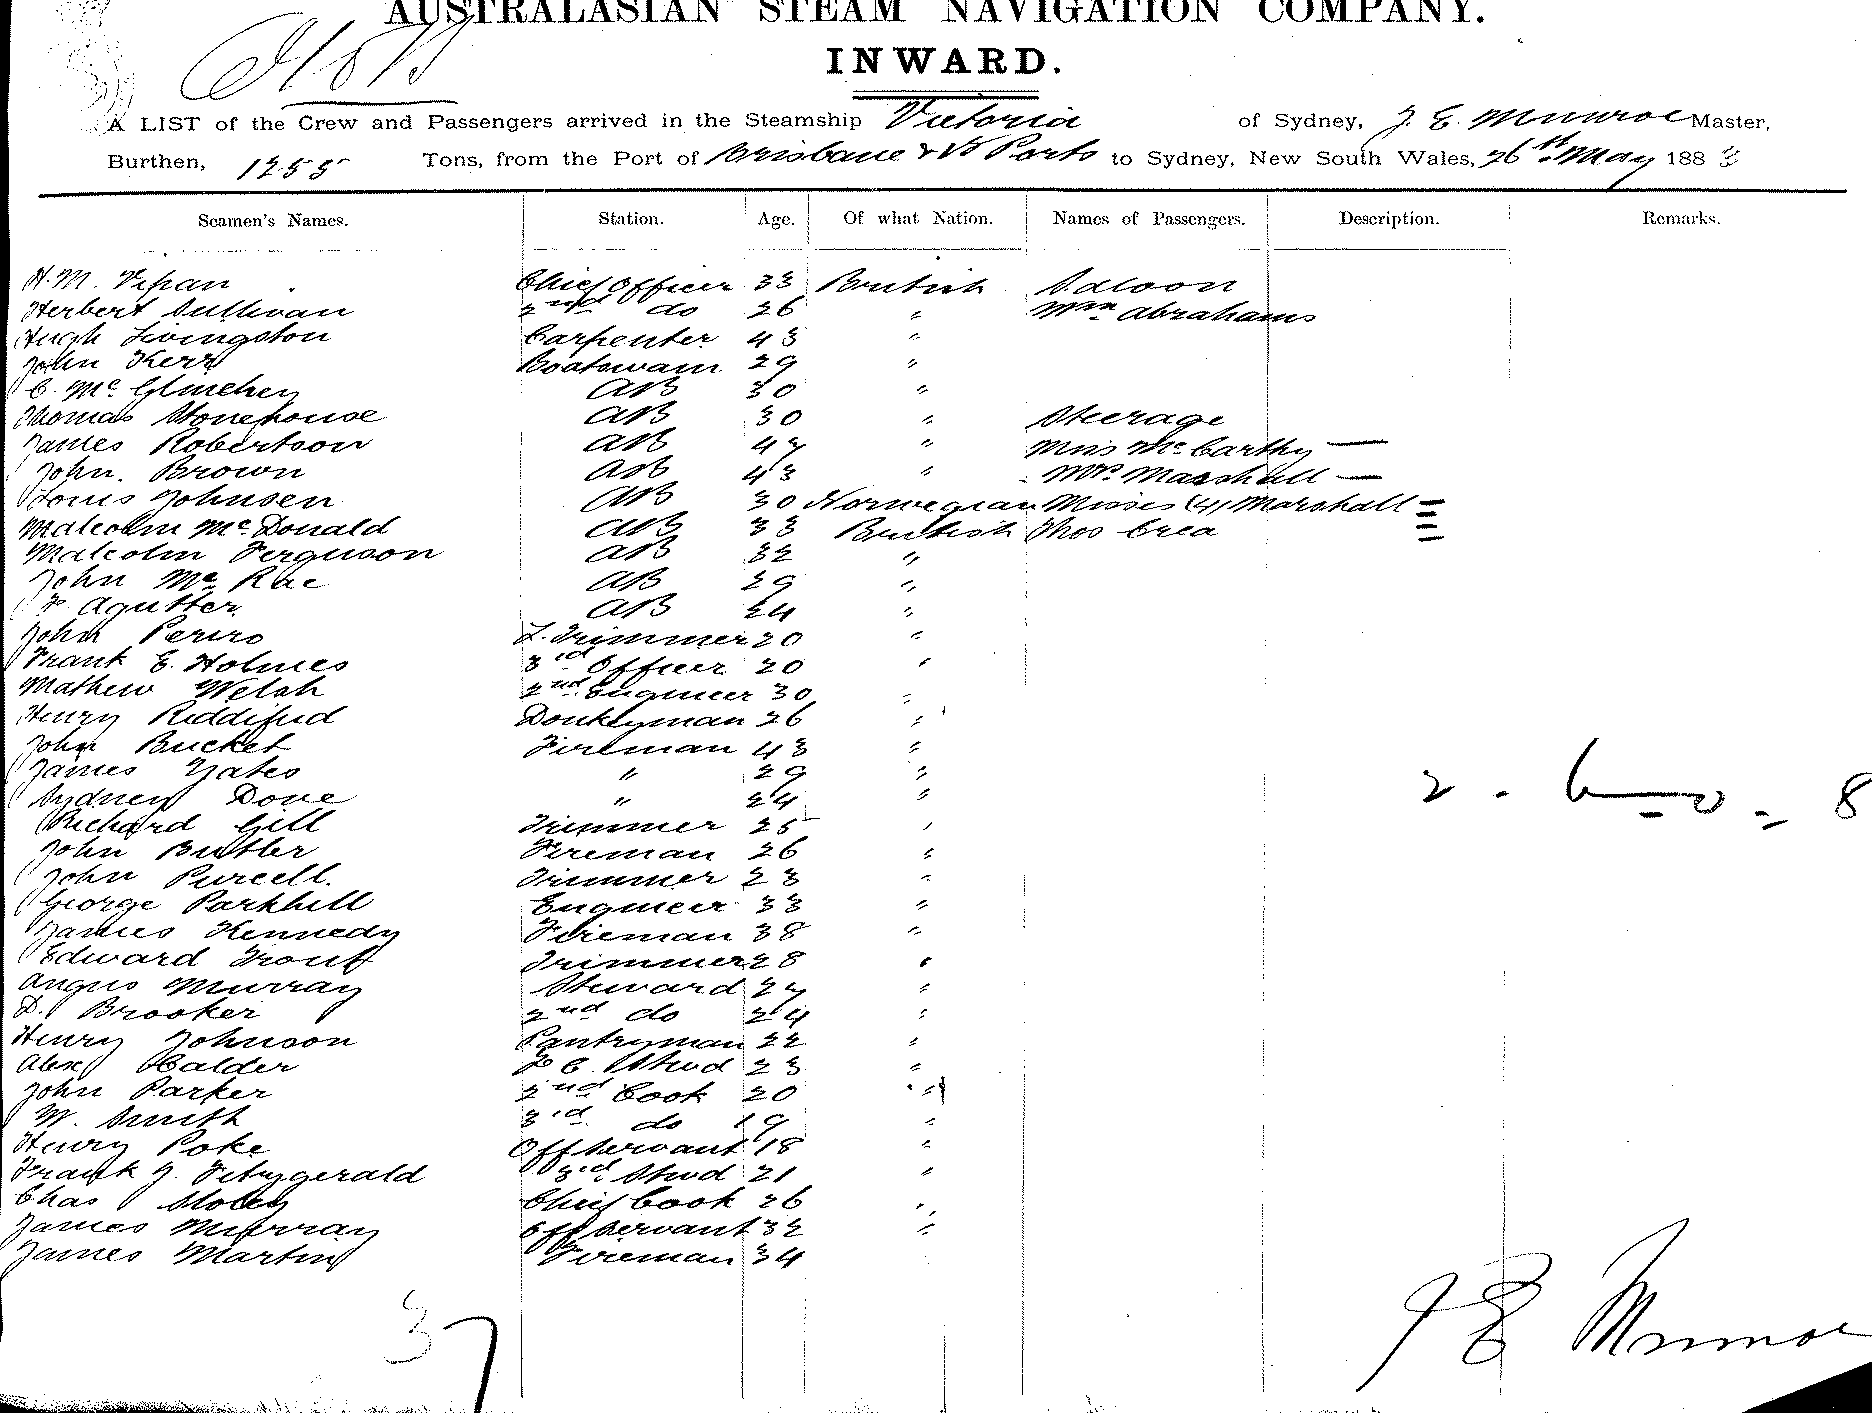 AUSTRALASIAN STEAM NAVIGATION COMPANY.
INWARD.
A LIST of the Crew and Passengers arrived in the Steamship Victoria of Sydney, J. E. Munroe Master,
Burthen, 1255 Tons, from the Port of Brisbane & B Ports to Sydney, New South Wales, 26th May 1883
Seamen's Names. Station. Age. Of what Nation. Names of Passengers. Description. Remarks.
H. M. Vipan Chief Officer 33 British Saloon
Herbert Sullivan 2nd do 26 " Wm Abrahams
Hugh Livingston Carpenter 43 "
John Kerr Boatswain 29 "
C. Mc AB 30 "
Thomas Stonehouse AB 30 " Steerage
James Robertson AB 47 " Miss McCarthy —
John Brown AB 43 " Mrs Marshall —
Louis Johnsen AB 30 Norwegian Misses (4) Marshall
Malcolm McDonald AB 33 British Thos Crea
Malcolm Ferguson AB 32 "
John McRae AB 29 "
F Agutter AB 24 "
John L. Trimmer 20 "
Frank E. Holmes 3rd Officer 20 "
Mathew Welsh 2nd Engineer 30 "
Henry Riddiford Donkeyman 26 "
John Bucket Fireman 43 "
James Yates " 29 "
Sydney Dove " 24 "
Richard Gill Trimmer 25 "
John Butler Fireman 26 "
John Purcell. Trimmer 23 "
George Parkhill Engineer 33 "
James Kennedy Fireman 38 "
Edward Trout Trimmer 28 "
Angus Murray Steward 27 "
D. Brooker 2nd do 24 "
Henry Johnson Pantryman 22 "
Alex Calder F C. Stwd 23 "
John Parker 2nd Cook 20 "
W. Smith 3rd do 19 "
Henry Poke Off Servant 18 "
Frank J. Fitzgerald 3rd Stwd 21 "
Chas Cook 26 "
James Murray Off Servant 32 "
James Martin Fireman 34
37
J E Munroe